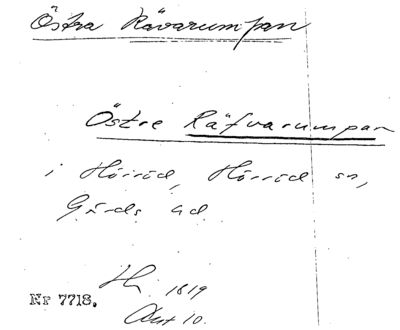 Östra Rävarumpan
Östre Räfvarumpan
i Hörröd, Hörröd sn,
Gärds hd
Hr. 1819
Nr 7718.
Akt 10.